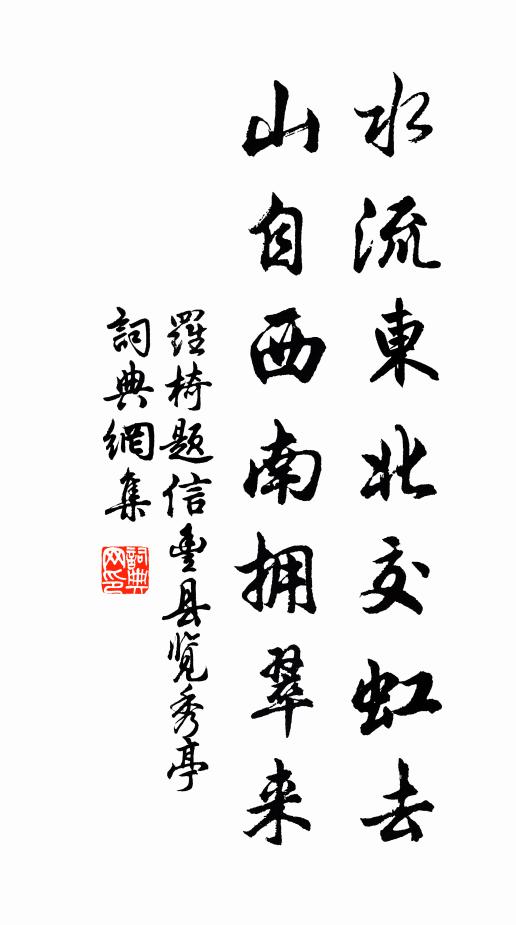 水流東北交虹去
山自西南拥翠来
羅椅题信豊县览秀亭
詞典網集
詞典网印